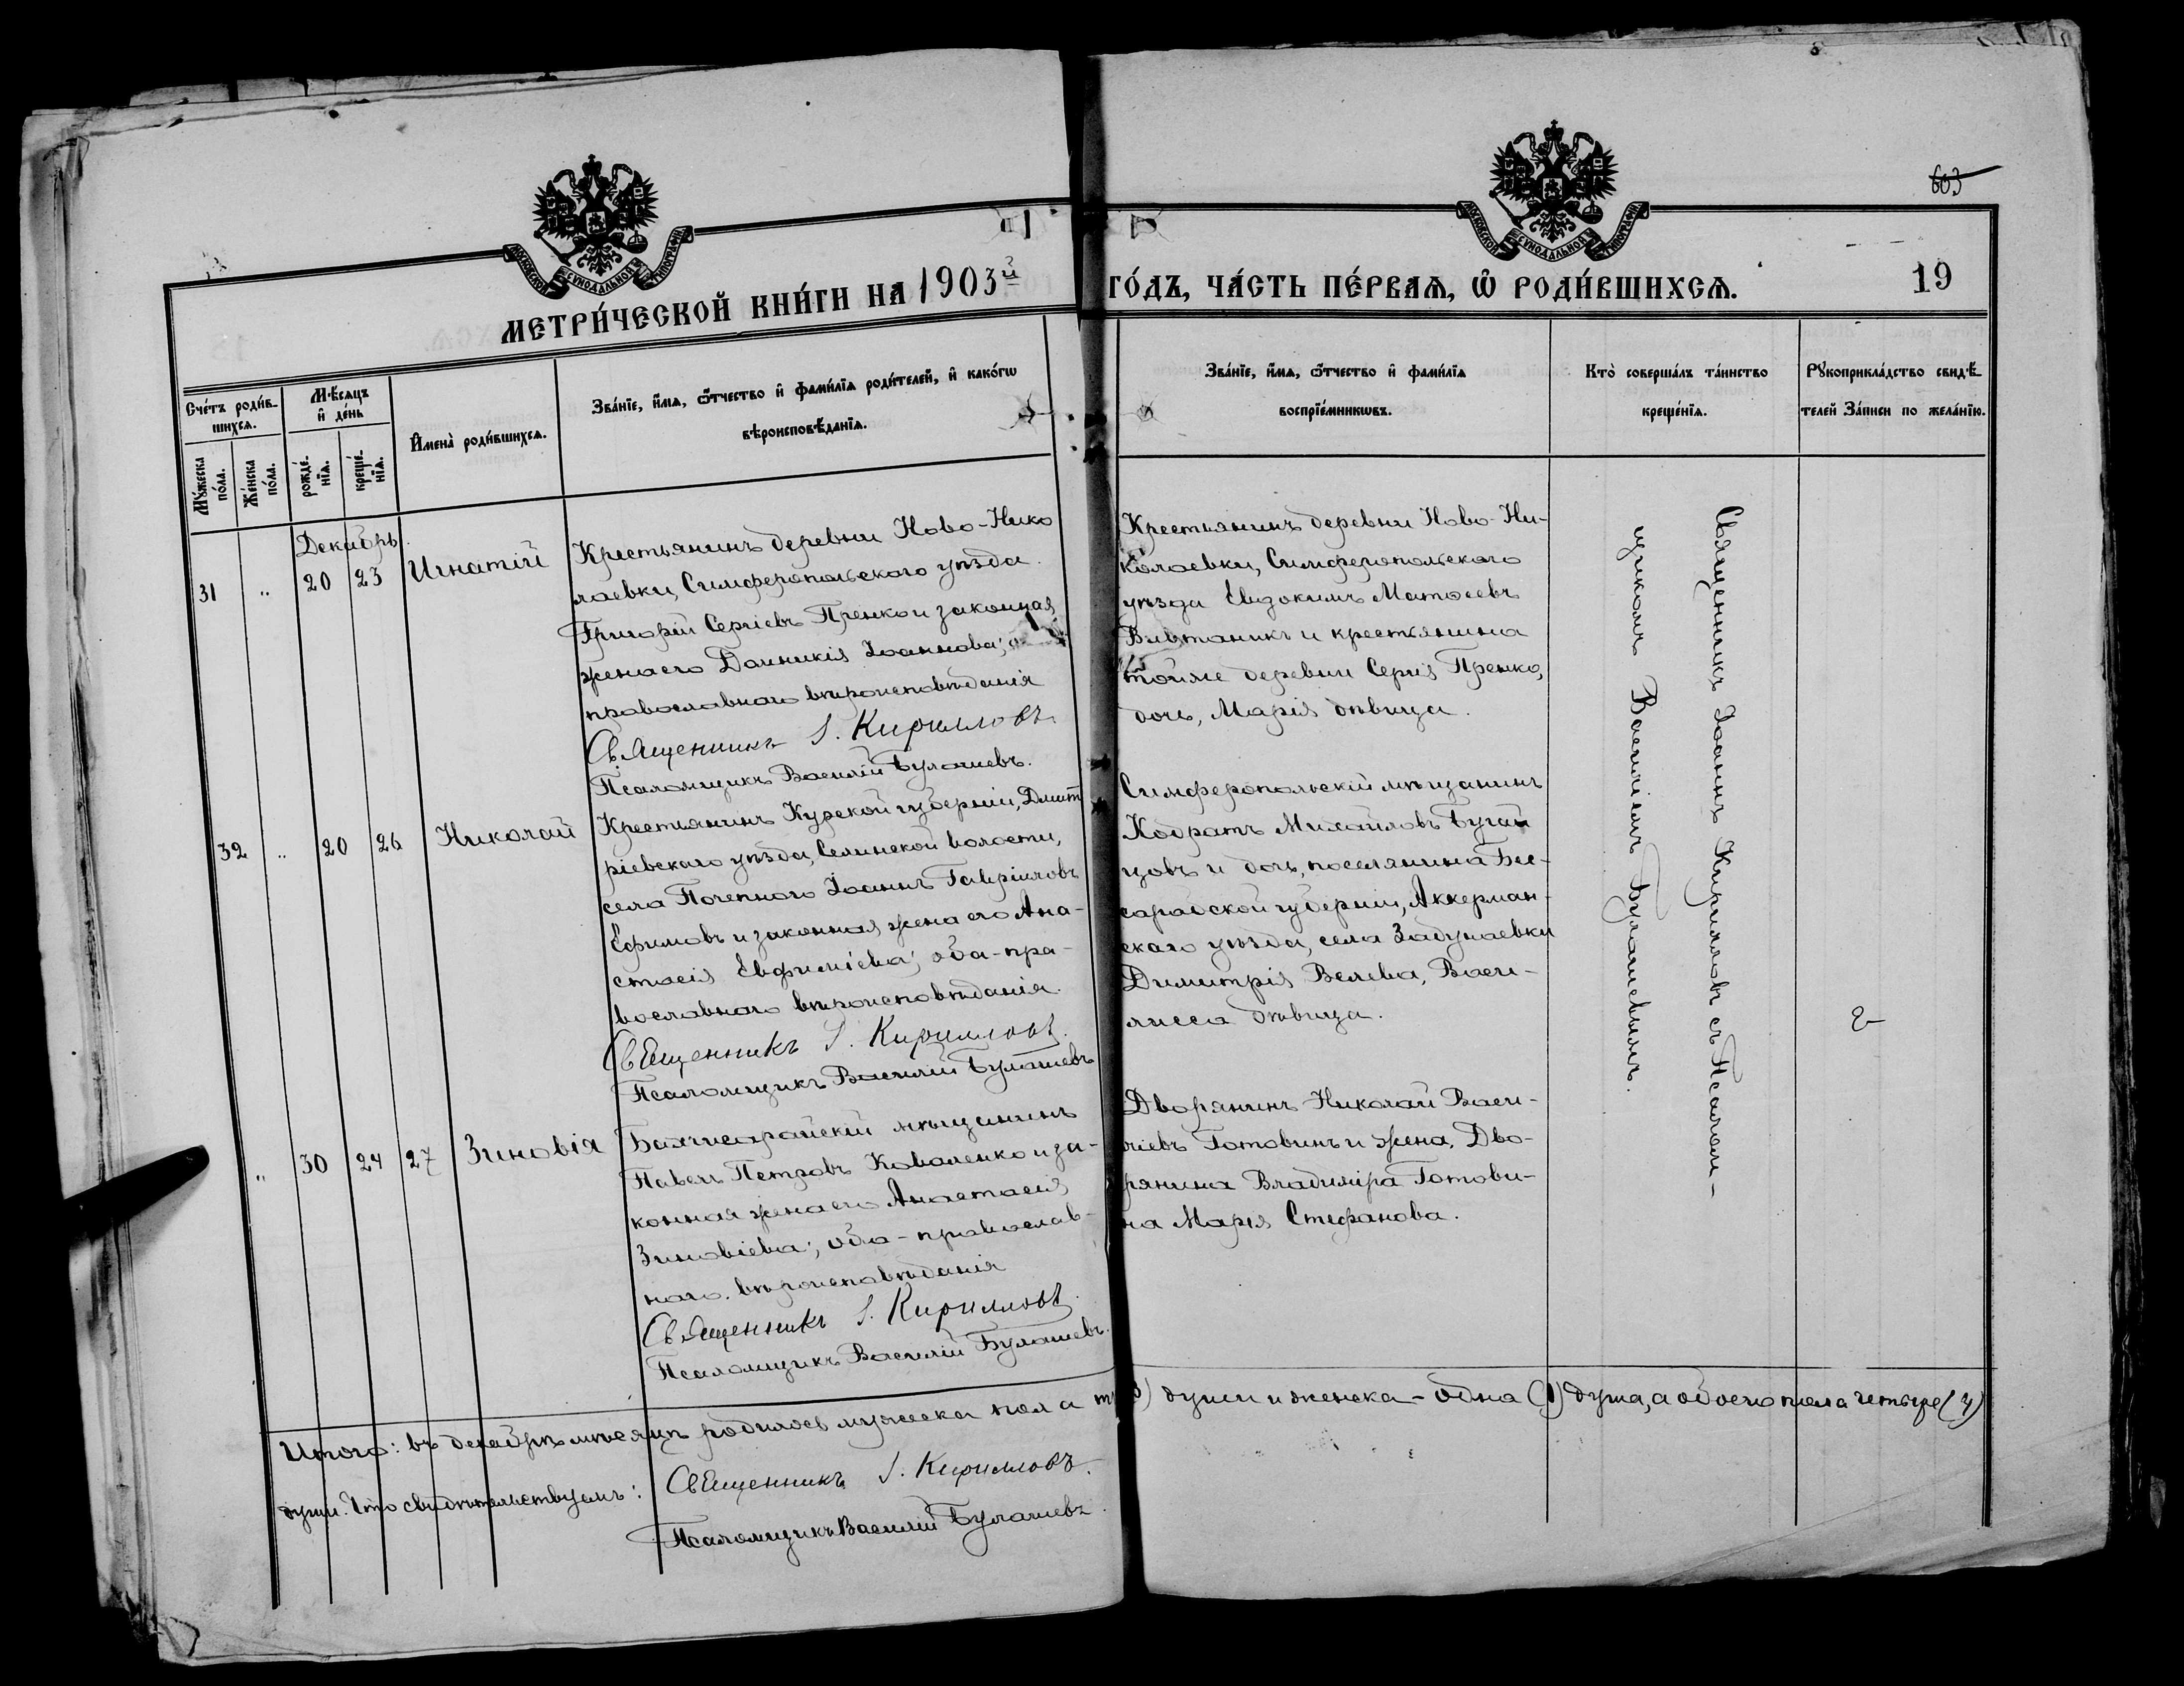 603
МОСКОВСКОЙ СУНОДАЛЬНОЙ ТИПОГРАФІИ
МОСКОВСКОЙ СУНОДАЛЬНОЙ ТИПОГРАФІИ
МЕТРИ́ЧЕСКОЙ КНИ́ГИ НА 1903й ГО́ДЪ, ЧА́СТЬ ПЕ́РВАѦ, Ѡ РОДИ́ВШИХСѦ.
19
Сче́тъ роди́в-
шихсѧ.
Мꙋ́жеска
по́ла.
Же́нска
по́ла.
Мѣ́сѧцъ
и҆ де́нь
рожде́-
нїѧ.
креще́-
нїѧ.
И҆мена̀ роди́вшихсѧ.
Зва́нїе, и҆́мѧ, ѻ҆́тчество и҆ фами́лїѧ роди́телей, и҆ како́гѡ
вѣроисповѣ́данїѧ.
Зва́нїе, и҆́мѧ, ѻ҆́тчество и҆ фами́лїѧ
воспрїе́мникѡвъ.
Кто̀ соверша́лъ та́инство
креще́нїѧ.
Рꙋкоприкла́дство свидѣ́-
телей за́писи по жела́нїю.
Декабрь.
31 " 20 23 Игнатій
Крестьянинъ деревни Ново-Нико
лаевки, Симферопольскаго уѣзда
Григорій Сергіевъ Пренко и законная
жена его Домникія Іоаннова;
православнаго вѣроисповѣданія
Священникъ І. Кирилловъ
Псаломщикъ Василій Булашевъ.
Крестьянинъ деревни Ново-Ни-
колаевки, Симферопольскаго
уѣзда Евдокимъ Матѳеевъ
и крестьянина
тойже деревни Сергія Пренко,
дочь, Марія дѣвица.
32 " 20 26 Николай
Крестьянинъ Курской губерніи, Дмит
ріевскаго уѣзда, Селинской волости,
села Почепного Іоаннъ Гавріиловъ
Ефимовъ и законная жена его Ана-
стасія Евфиміева; оба-пра-
вославнаго вѣроисповѣданія.
Священникъ І. Кирилловъ.
Псаломщикъ Василій Булашевъ
Симферопольскій мѣщанинъ
Кодратъ Михайловъ Бугай
цовъ и дочь, поселянина Бес-
сарабской губерніи, Аккерман-
скаго уѣзда, села Задунаевки
Димитрія Велева, Васи-
лисса дѣвица.
" 30 24 27 Зиновія
Бахчисарайскій мѣщанинъ
Павелъ Петровъ Коваленко и за-
конная жена его Анастасія
Зиновіева; оба-православ-
наго вѣроисповѣданія
Священникъ І. Кирилловъ.
Псаломщикъ Василій Булашевъ.
Дворянинъ Николай Васи-
ліевъ Готовинъ и жена, Дво-
рянина Владиміра Готови-
на Марія Стефанова.
Священникъ Іоаннъ Кирилловъ съ Псалом-
щикомъ Василіемъ Булашевымъ.
Итого: въ декабрѣ мѣсяцѣ родилось мужеска пола 3) души и женска - одна (1) душа, а обоего пола четыре (4)
души. Что свидѣтельствуемъ:
Священникъ І. Кирилловъ.
Псаломщикъ Василій Булашевъ.